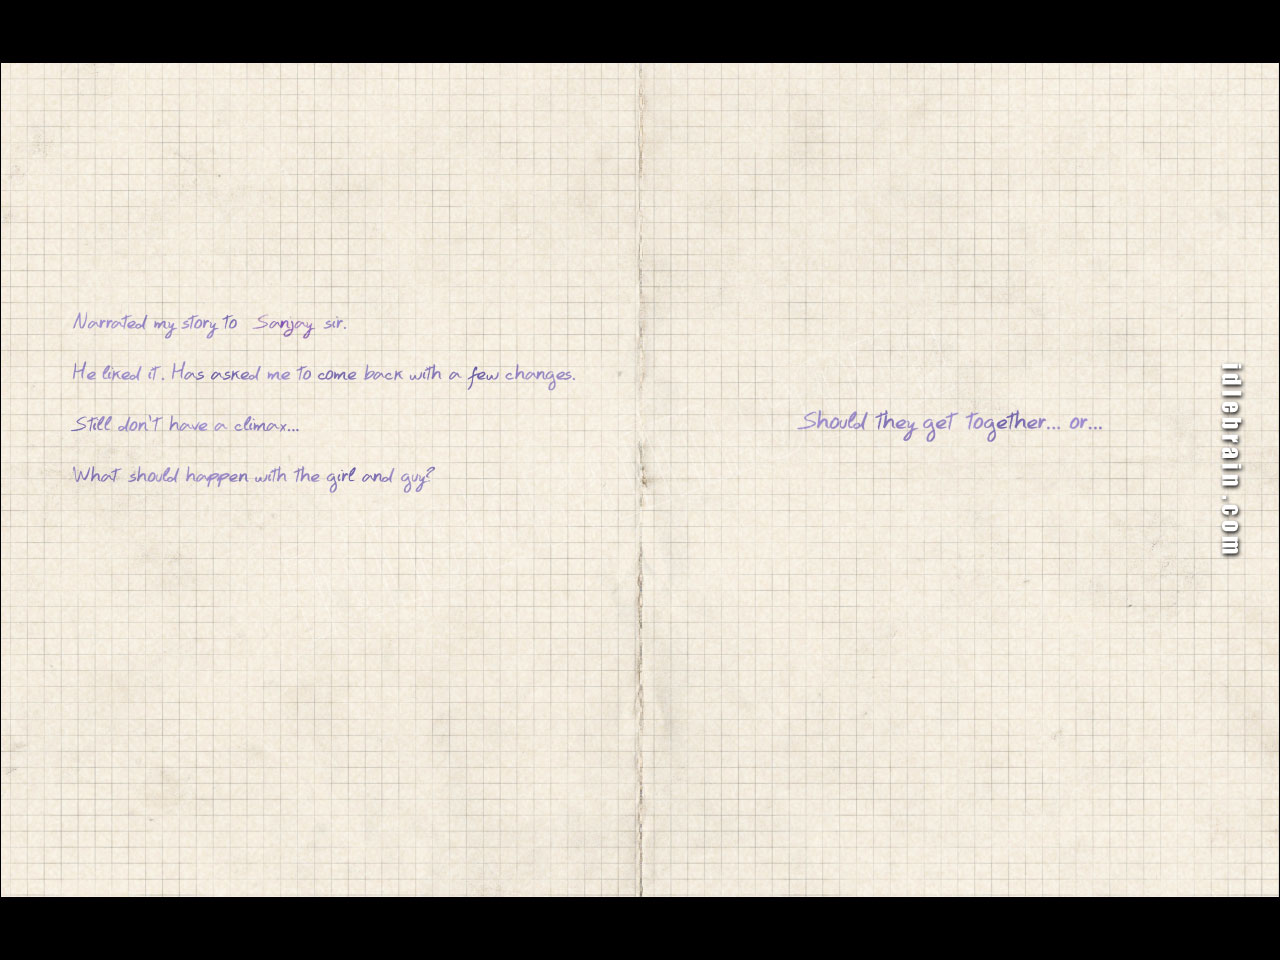 Narrated my story to Sanjay sir.
He liked it. Has asked me to come back with a few changes.
Still don't have a climax...
What should happen with the girl and guy?
Should they get together... or...
idlebrain.com